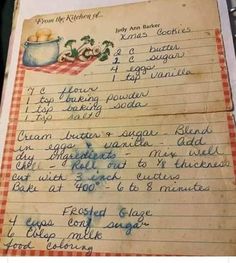 From the Kitchen of...
Judy Ann Barker
Xmas Cookies
2 c butter
2 c sugar
4 eggs
1 tsp vanilla
7 c flour
1 tsp baking powder
1 tsp baking soda
1 tsp salt
Cream butter & sugar - Blend
in eggs & vanilla - add
dry ingredients - mix well
chill - Roll out to ¼ thickness
cut with 3 inch cutters
Bake at 400° - 6 to 8 minutes
Frosted Glaze
4 cups conf sugar
6 tblsp milk
food coloring